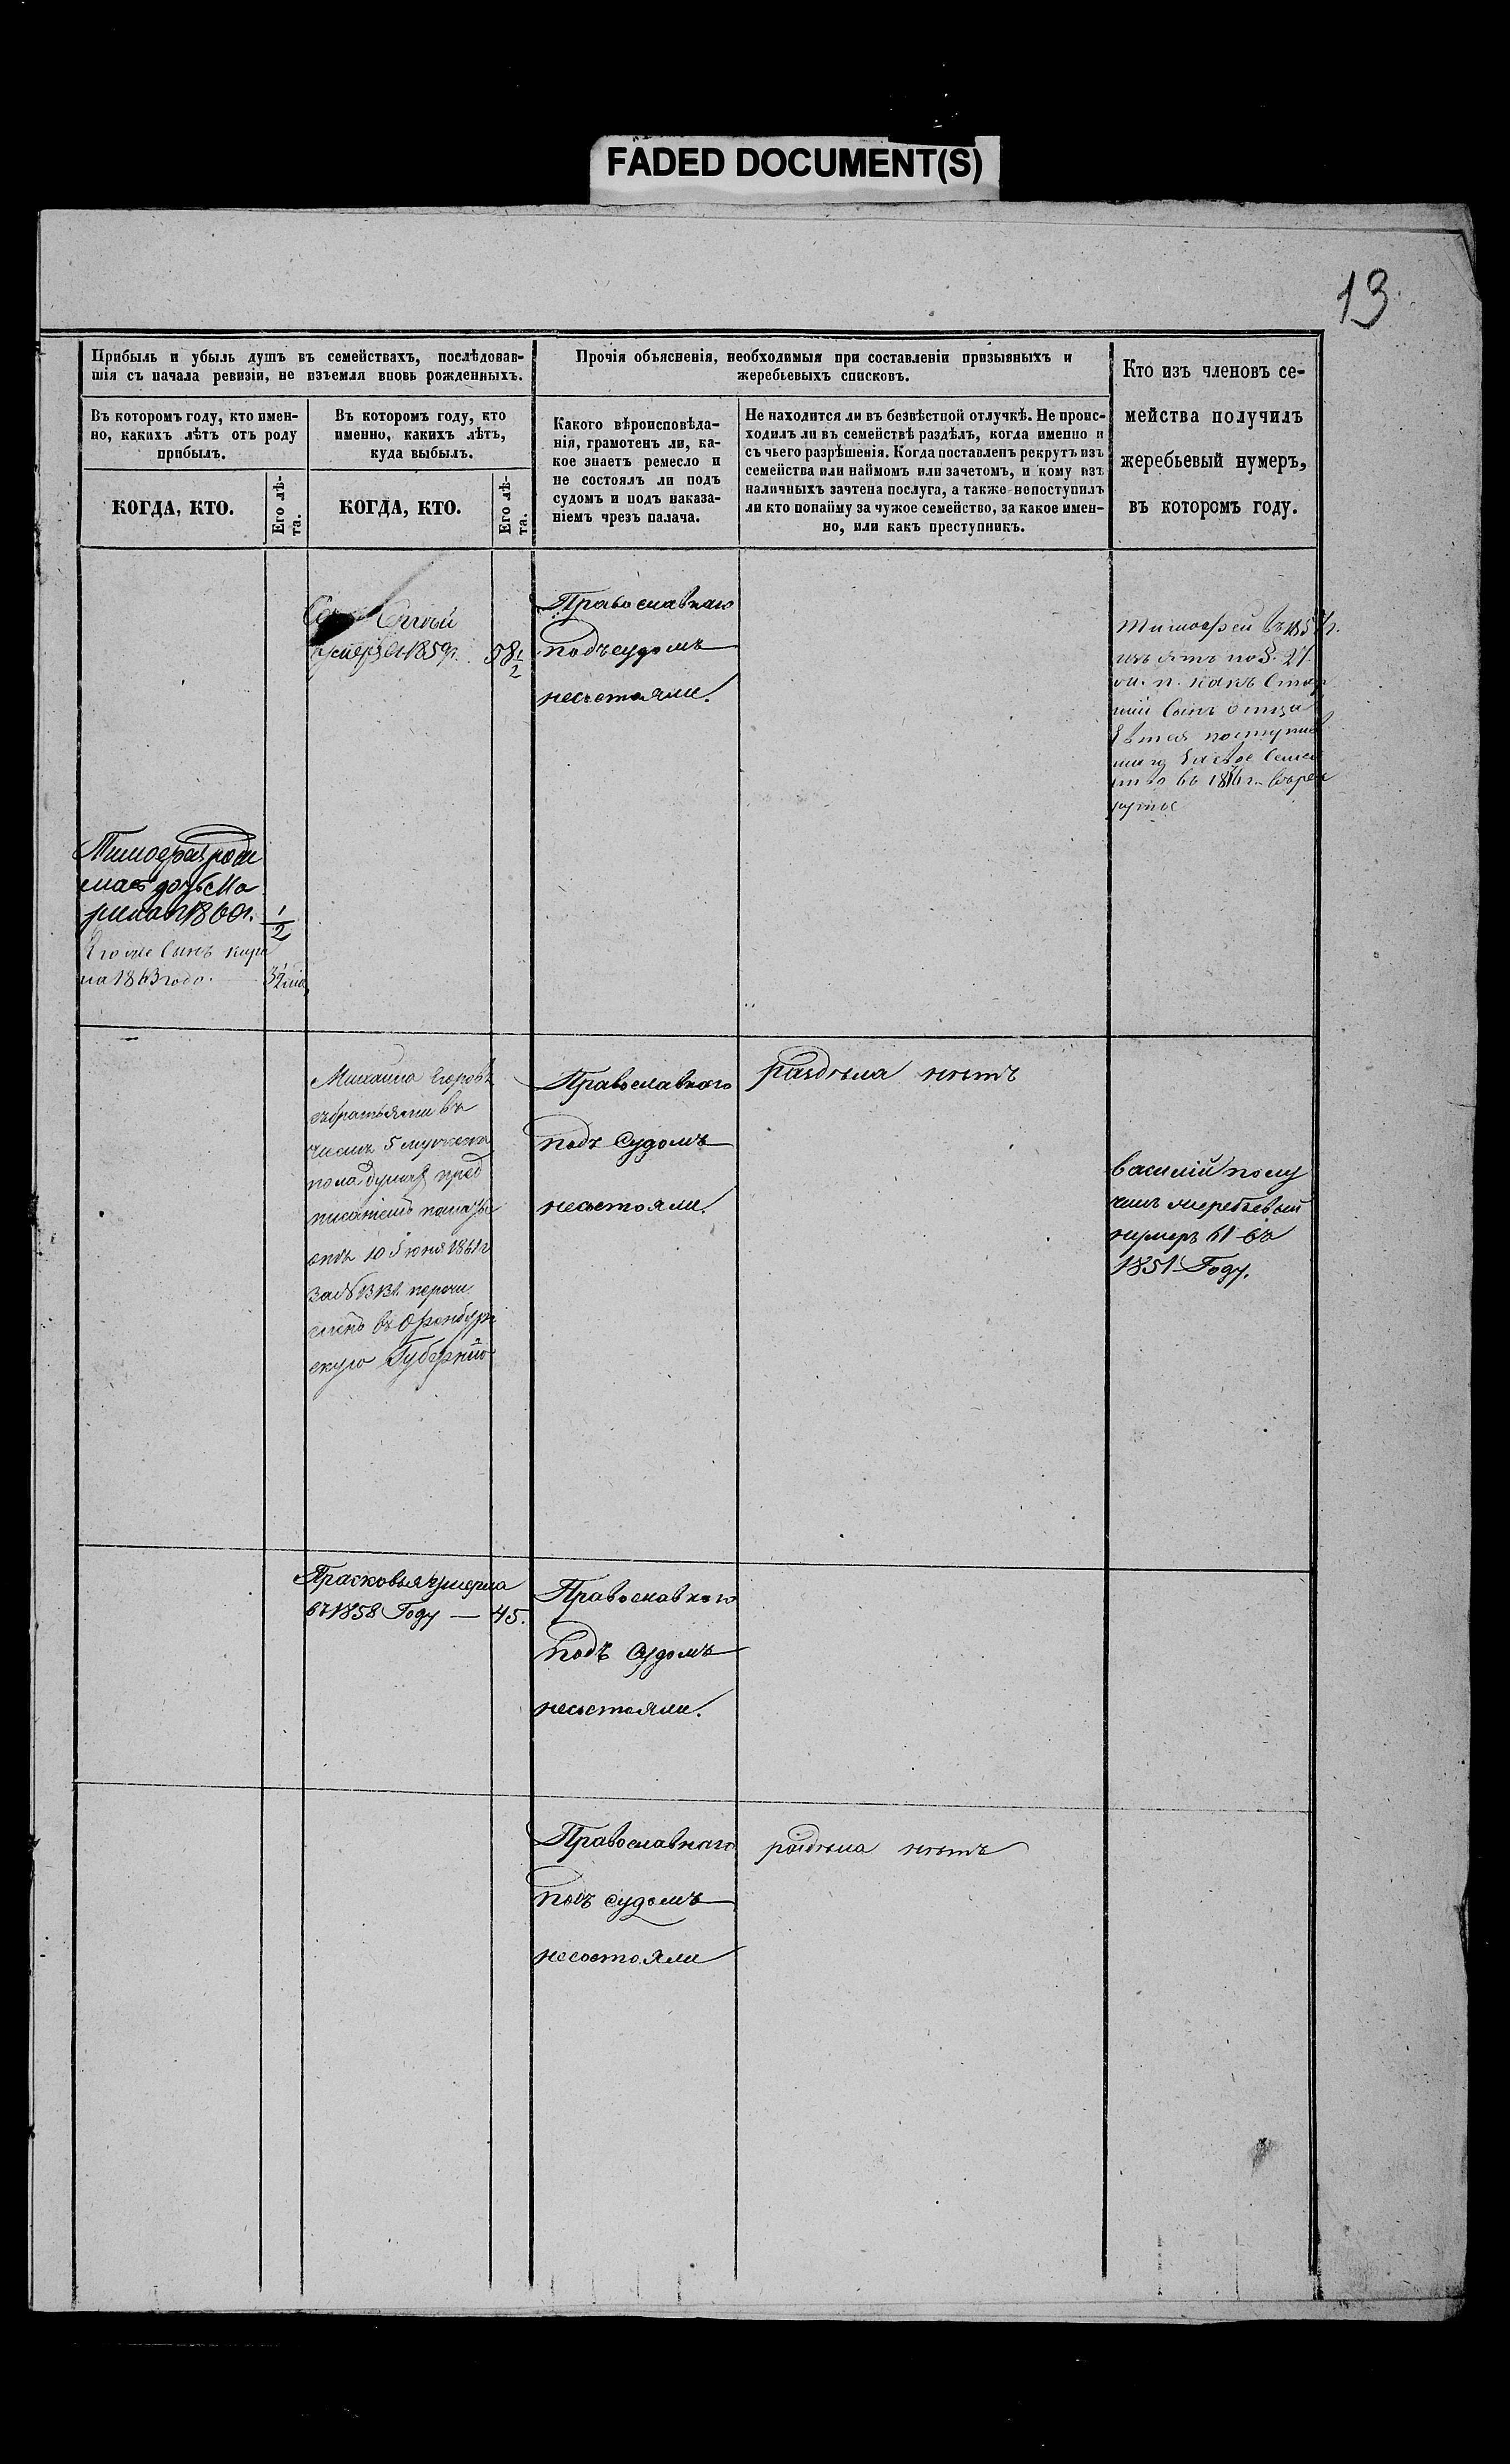 FADED DOCUMENT(S)
13
Прибыль и убыль душъ въ семействахъ, послѣдовав-
шія съ начала ревизіи, не изъемля вновь рожденныхъ.
Прочія объясненія, необходимыя при составленіи призывныхъ и
жеребьевыхъ списковъ.
Кто изъ членовъ се-
мейства получилъ
жеребьевый нумеръ,
въ которомъ году.
Въ которомъ году, кто имен-
но, какихъ лѣтъ отъ роду
прибылъ.
Въ которомъ году, кто
именно, какихъ лѣтъ,
куда выбылъ.
Какого вѣроисповѣда-
нія, грамотенъ ли, ка-
кое знаетъ ремесло и
не состоялъ ли подъ
судомъ и подъ наказа-
ніемъ чрезъ палача.
Не находится ли въ безвѣстной отлучкѣ. Не проис-
ходилъ ли въ семействѣ раздѣлъ, когда именно и
съ чьего разрѣшенія. Когда поставленъ рекрутъ изъ
семейства или наймомъ или зачетомъ, и кому изъ
наличныхъ зачтена послуга, а также непоступилъ
ли кто понайму за чужое семейство, за какое имен-
но, или какъ преступникъ.
КОГДА, КТО.
Его лѣ-
та.
КОГДА, КТО.
Его лѣ-
та.
Сергѣй
умеръ въ 1859г. 58 1/2
Православнаго
подъ судомъ
несостояли.
Тимофей въ 1857г.
изъятъ по §. 27.
какъ стар
шій сынъ отца
поступив
семей
ство въ рек
руты
родилась дочь Ма
рина 1860г. 1/2
Его же сынъ
1863 года.
Михаила Егоровъ
съ братьями въ
числѣ 5 мужеска
пола душъ пред
писаніемъ палаты
отъ 10 Іюня 1861г
за № перечи
сленъ въ Оренбург
скую Губернію
Православнаго
подъ судомъ
несостояли.
раздѣла нѣтъ
Василій полу
чилъ жеребьевый
нумеръ 61 въ
1851 Году.
Прасковья умерла
въ 1858 Году — 45.
Православнаго
подъ судомъ
несостояли.
Православнаго
подъ судомъ
несостояли
раздѣла нѣтъ